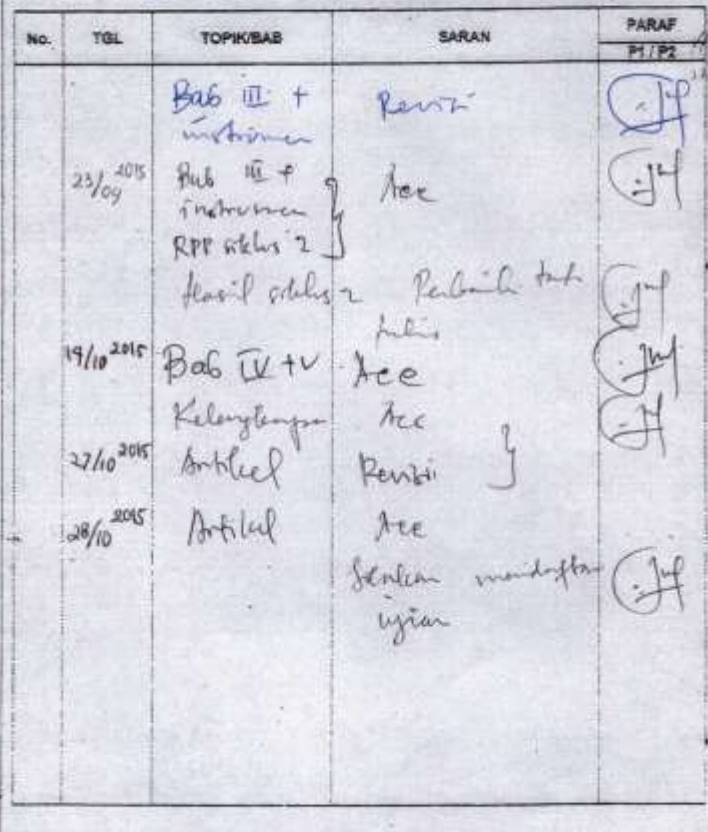 No. TGL TOPIK/BAB SARAN PARAF
P1 / P2
Bab III + Revisi
instrumen
23/09 2015 Bab III + Acc
instrumen
RPP siklus 2
Hasil siklus 2 Perbaiki tata
tulis
19/10 2015 Bab IV + V Acc
Kelengkapan Acc
27/10 2015 Artikel Revisi
28/10 2015 Artikel Acc
Silakan mendaftar
ujian